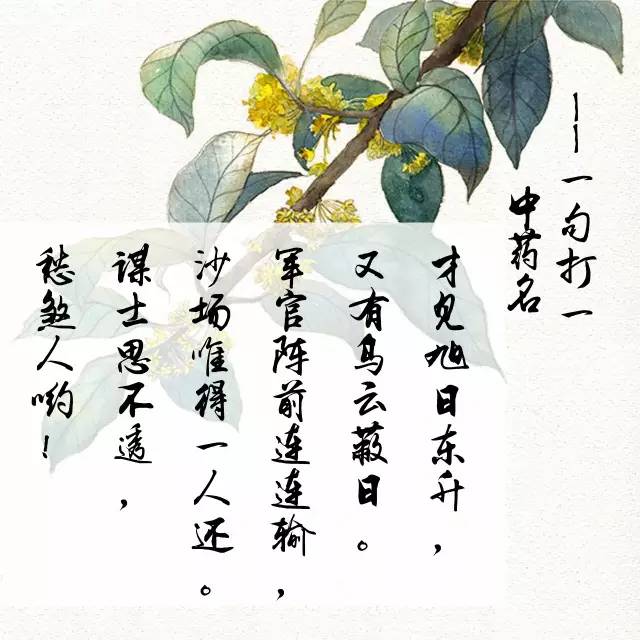 ——一句打一
中药名
才见旭日东升，
又有乌云蔽日。
军官阵前连连输，
沙场唯得一人还。
谋士思不透，
愁煞人哟！